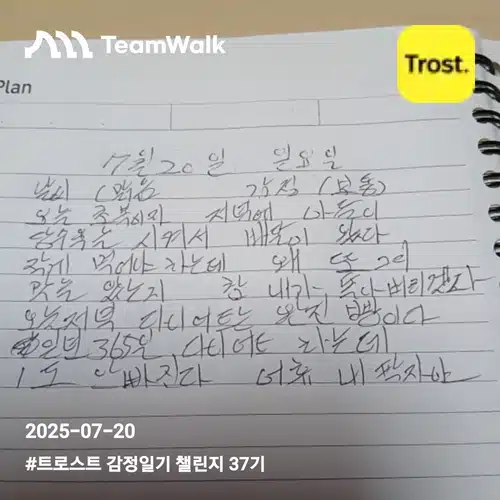 TeamWalk
Trost.
Plan
7월 20일 일요일
날씨 (맑음 감정 (보통)
오늘 초복이자 저녁에 아들이
탕수육을 시켜서 배달이 왔다
적게 먹어야 하는데 왜 또 그리
맛은 있는지 참 내가 못나 버티겠다
오늘저녁 다이어트는 완전 빵이다
일년 365일 다이어트 하는데
1도 안빠진다 어휴 내 팍자야
2025-07-20
#트로스트 감정일기 챌린지 37기